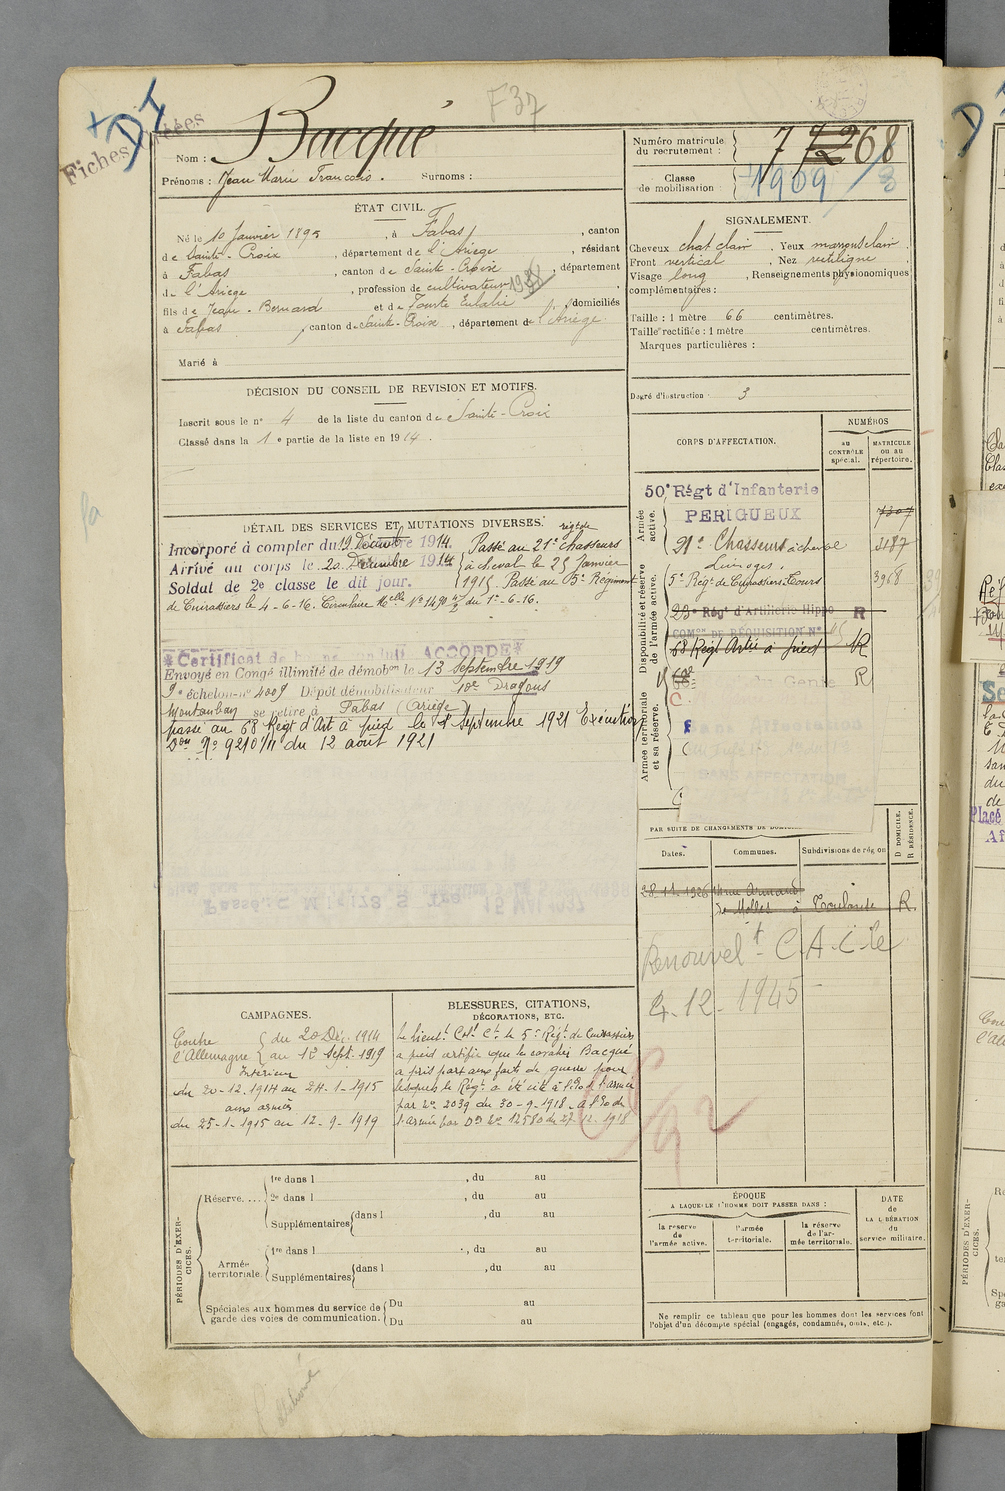 F37
+ DI
Fiches créées
Nom : Bacqué
Prénoms : Jean Marie François. Surnoms :
Numéro matricule du recrutement : 7 72 68
Classe de mobilisation : 1909 / 8
ÉTAT CIVIL.
Né le 10 Janvier 1895, à Fabas, canton
de Sainte-Croix, département de l'Ariège, résidant
à Fabas, canton de Sainte-Croix, département
de l'Ariège, profession de cultivateur
fils de Jean-Bernard et de Eulalie domiciliés
à Fabas, canton de Sainte-Croix, département de l'Ariège.
Marié à
SIGNALEMENT.
Cheveux chat clair. Yeux marrons clair.
Front vertical, Nez rectiligne,
Visage long, Renseignements physionomiques
complémentaires :
Taille : 1 mètre 66 centimètres.
Taille rectifiée : 1 mètre centimètres.
Marques particulières :
Degré d'instruction : 3
DÉCISION DU CONSEIL DE REVISION ET MOTIFS.
Inscrit sous le n° 4 de la liste du canton de Sainte-Croix
Classé dans la 1e partie de la liste en 1914.
DÉTAIL DES SERVICES ET MUTATIONS DIVERSES.
Incorporé à compter du 19 Décembre 1914. Passé au 21e régt de chasseurs
Arrivé au corps le 20 Décembre 1914 à cheval le 25 Janvier
Soldat de 2e classe le dit jour. 1915. Passé au 5e Régiment
de Cuirassiers le 4-6-16. Circulaire Mlle N° 1490 du 1er-6-16.
*Certificat de bonne conduite ACCORDÉ*
Envoyé en Congé illimité de démobon le 13 Septembre 1919
9e échelon n° 4009 Dépôt démobilisateur 10e Dragons
Montauban se retire à Fabas (Ariège)
passé au 68 Régt d'Art à pied le 1er Septembre 1921 Exécution
Don N° 9210/11 du 12 août 1921
CORPS D'AFFECTATION.
NUMÉROS
au CONTRÔLE spécial.
MATRICULE ou au répertoire.
Armée active.
50e Régt d'Infanterie
PERIGUEUX 7307
21e Chasseurs à cheval 3187
Limoges.
Disponibilité et réserve de l'armée active.
5e Régt de Cuirassiers Tours 3968
23e Régt d'Artillerie Hippo R
COMon DE RÉQUISITION N°
68 Régt Artie à pied R
du Génie R
Armée territoriale et sa réserve.
Sans Affectation
SANS AFFECTATION
PAR SUITE DE CHANGEMENTS DE
Dates.
Communes.
Subdivisions de région
D DOMICILE.
R RÉSIDENCE.
28-12-1926 rue Armand
de Molles à Toulouse R
Renouvelt C.A. Cle
4-12-1945
CAMPAGNES.
Contre l'Allemagne du 20 Déc. 1914
au 12 Sept. 1919
Intérieur
du 20-12-1914 au 24-1-1915
aux armées
du 25-1-1915 au 12-9-1919
BLESSURES, CITATIONS,
DÉCORATIONS, ETC.
Le Lieutt Col. Ct le 5e Régt de Cuirassiers
à pied certifie que le cavalier Bacqué
a pris part aux faits de guerre pour
lesquels le Régt a été cité à l'O. de l'armée
par N° 2039 du 30-9-1918 - à l'O. de
l'armée par On N° 12580 du 27-12-1918
PÉRIODES D'EXERCICES.
Réserve....
1re dans l , du au
2e dans l , du au
Supplémentaires dans l , du au
Armée territoriale.
1re dans l , du au
Supplémentaires dans l , du au
Spéciales aux hommes du service de garde des voies de communication.
Du au
Du au
ÉPOQUE
A LAQUELLE L'HOMME DOIT PASSER DANS :
la réserve de l'armée active.
l'armée territoriale.
la réserve de l'armée territoriale.
DATE
de
LA LIBÉRATION
du
service militaire.
Ne remplir ce tableau que pour les hommes dont les services font
l'objet d'un décompte spécial (engagés, condamnés, omis, etc.).